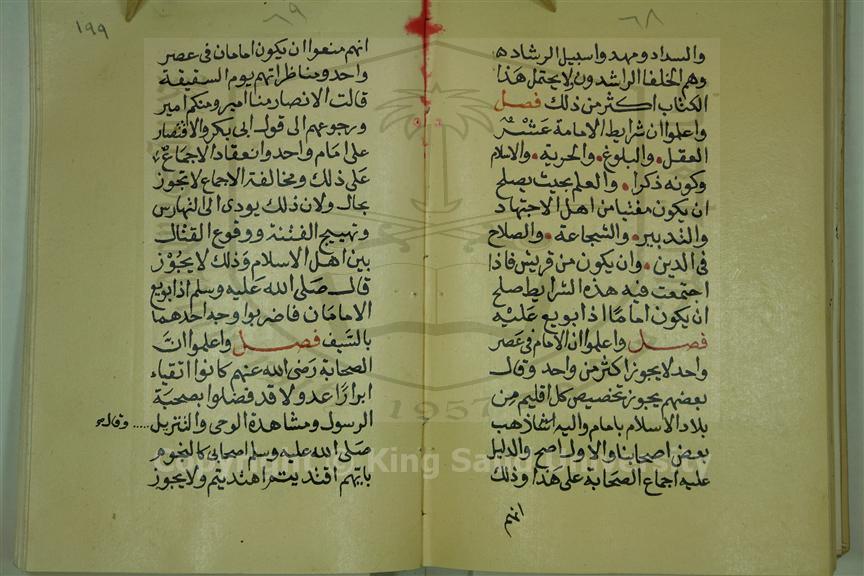 ٦٨
والسداد ومهدوا سبيل الرشاد ه
وهم الخلفا الراشدون ولا يحتمل هذا
الكتاب اكثر من ذلك فصل
واعلموا ان شرايط الامامة عشرة
العقل والبلوغ والحرية والاسلام
وكونه ذكرا والعلم بحيث يصلح
ان يكون مفتيا من اهل الاجتهاد
والتدبير والشجاعة والصلاح
في الدين وان يكون من قريش فاذا
اجتمعت فيه هذه الشرايط صلح
ان يكون اماما اذا بويع عليه
فصل واعلموا ان الامام في عصر
واحد لا يجوز اكثر من واحد وقال
بعضهم يجوز تخصيص كل اقليم من
بلاد الاسلام بامام واليه اشار ذهب
بعض اصحابنا والاول اصح والدليل
عليه اجماع الصحابة على هذا وذلك
انهم
٦٩
١٩٩
انهم منعوا ان يكون امامان في عصر
واحد ومناظراتهم يوم السقيفة
قالت الانصار منا امير ومنكم امير
ورجوعهم الى قول ابي بكر والاقتصار
على امام واحد وانعقاد الاجماع
على ذلك ومخالفة الاجماع لا تجوز
بحال ولان ذلك يودي الى التهارس
وتهييج الفتنة ووقوع القتال
بين اهل الاسلام وذلك لا يجوز
قال صلى الله عليه وسلم اذا بويع
الامامان فاضربوا وجه احدهما
بالسيف فصل واعلموا ان
الصحابة رضى الله عنهم كانوا اتقياء
ابرارا عدولا قد فضلوا بصحبة
الرسول ومشاهدة الوحى والتنزيل ..... وقال
صلى الله عليه وسلم اصحابي كالنجوم
بايهم اقتديتم اهتديتم ولا يجوز
1957
Copyright © King Saud University